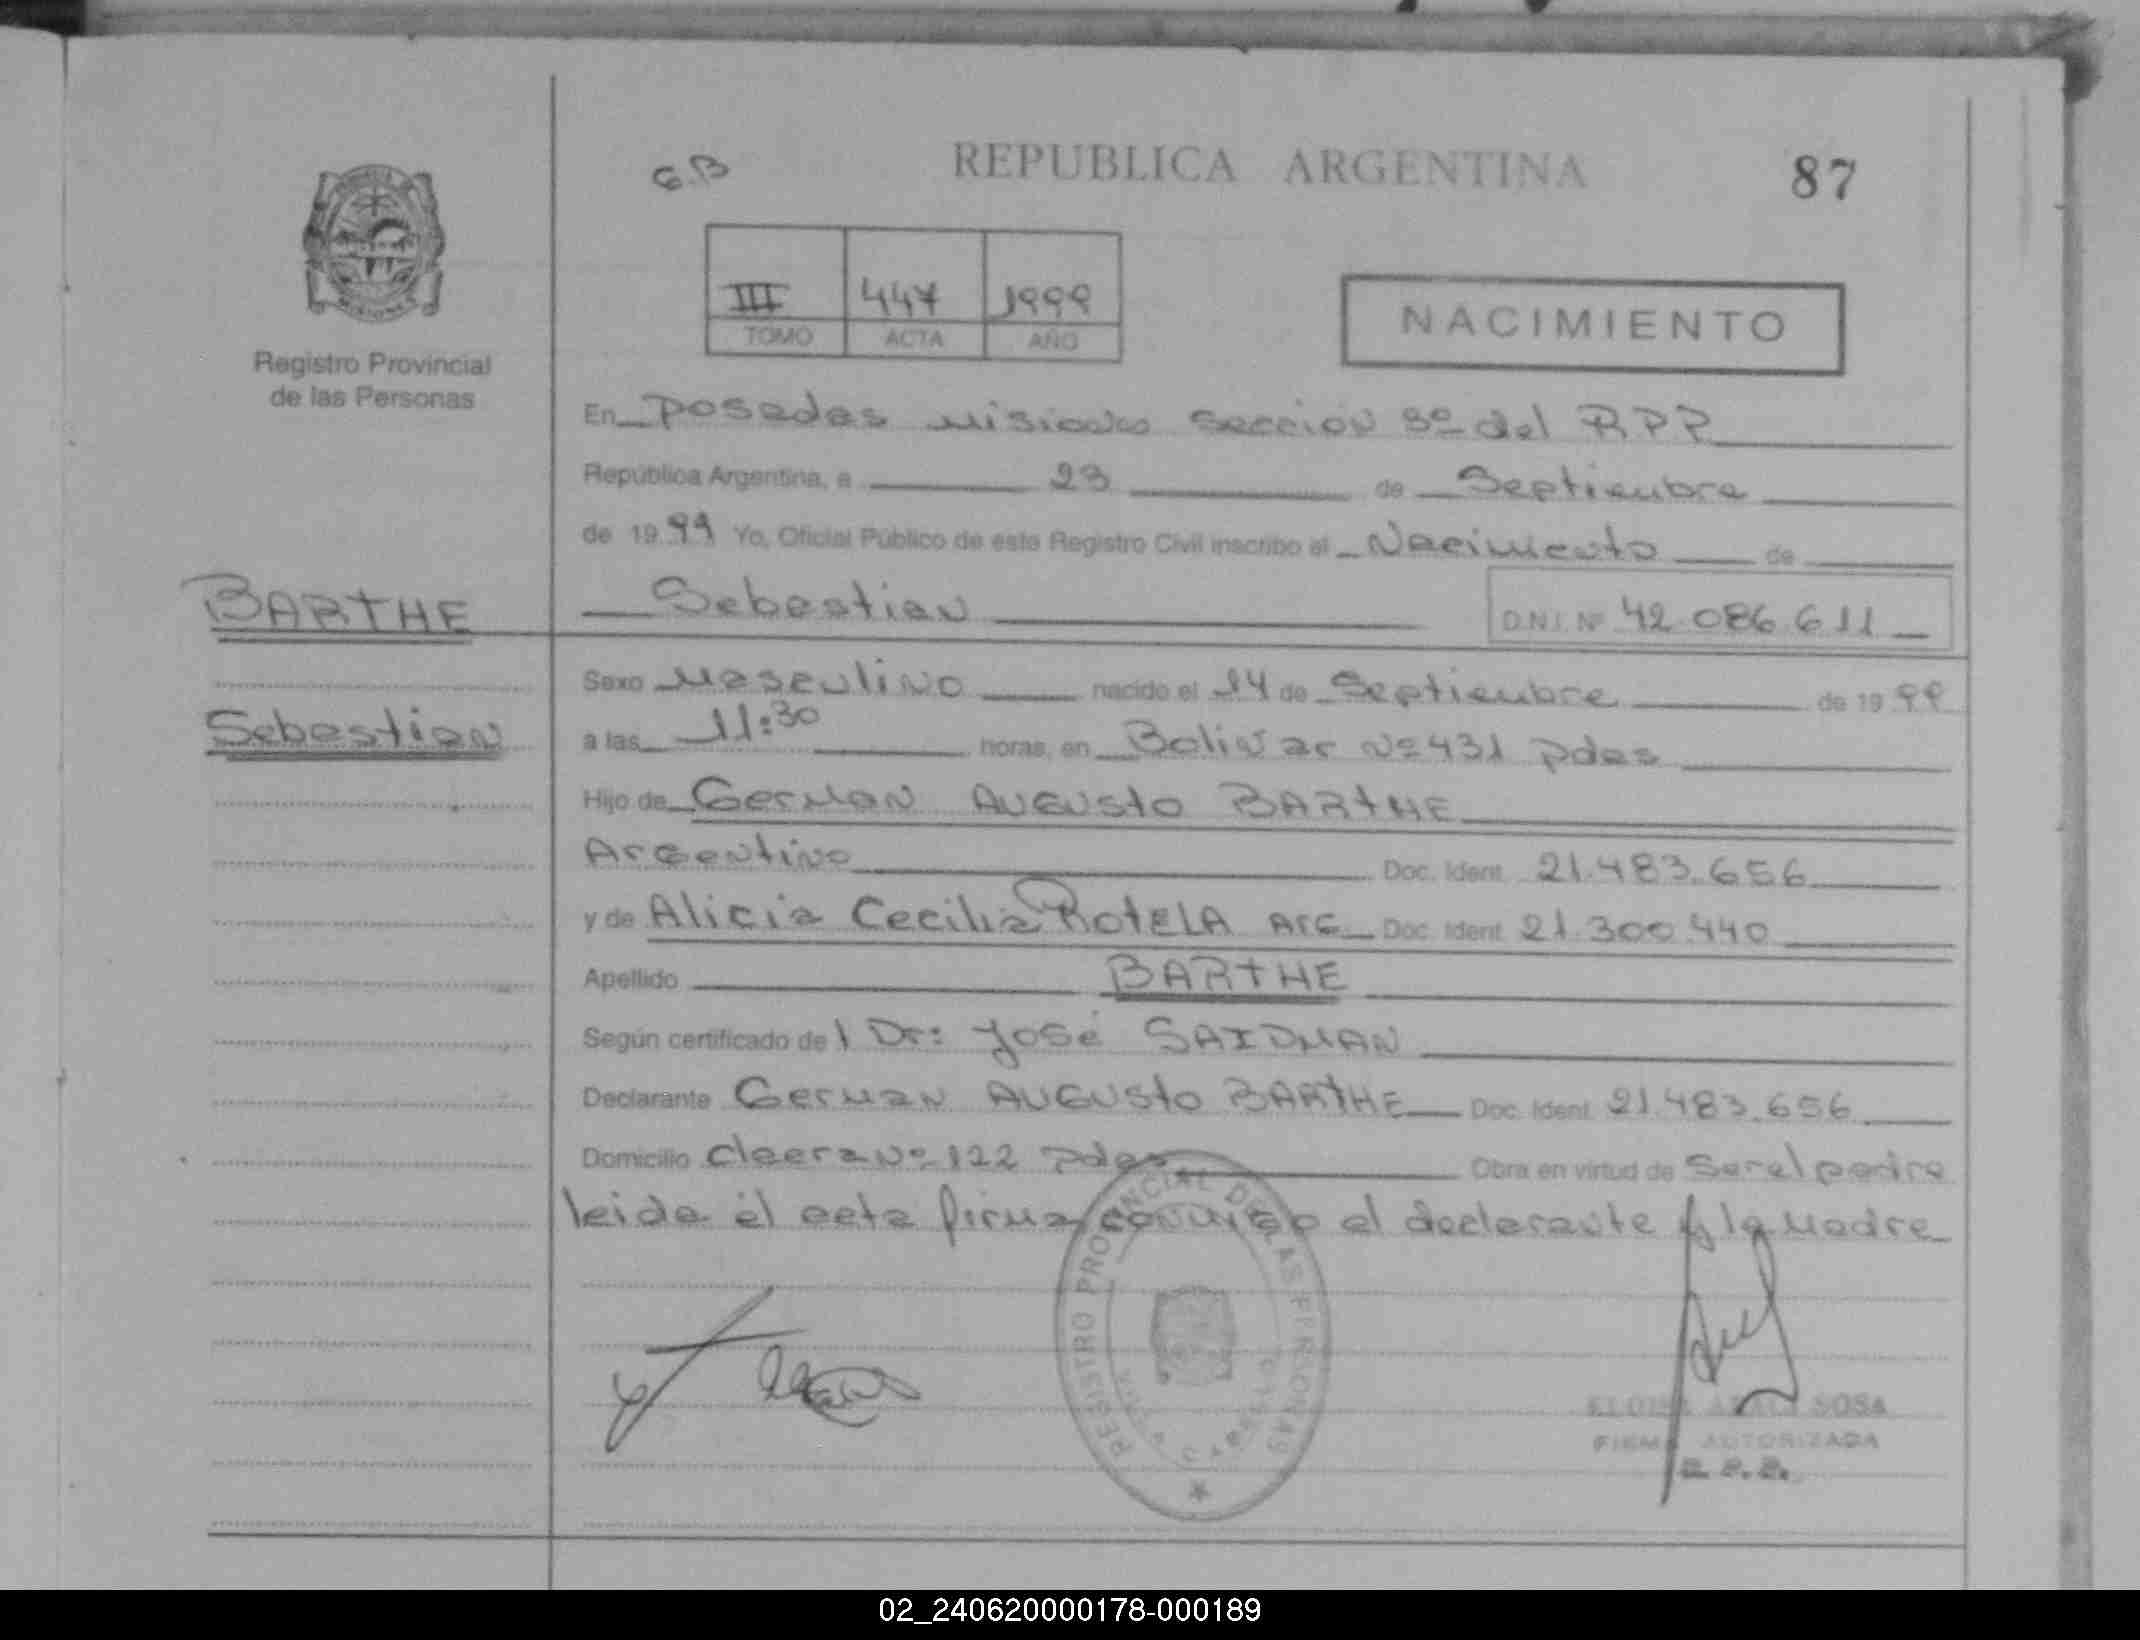 G.B
REPUBLICA ARGENTINA
87
III 447 1999
TOMO ACTA AÑO
NACIMIENTO
Registro Provincial
de las Personas
En Posadas Misiones Sección 3º del RPP
República Argentina, a 23 de Septiembre
de 1999 Yo, Oficial Público de este Registro Civil inscribo el Nacimiento de
BARTHE
Sebastian D.N.I. Nº 42.086.611
Sexo Masculino nacido el 14 de Septiembre de 1999
Sebastian
a las 11:30 horas, en Bolivar Nº 431 Pdas
Hijo de German Augusto BARTHE
Argentino Doc. Ident. 21.483.656
y de Alicia Cecilia ROTELA Arg Doc. Ident. 21.300.440
Apellido BARTHE
Según certificado del Dr: José SAIDMAN
Declarante German Augusto BARTHE Doc. Ident. 21.483.656
Domicilio Nº 122 Pdas Obra en virtud de Ser el padre
leida el acta firma conmigo el declarante y la Madre
REGISTRO PROVINCIAL DE LAS PERSONAS
SOSA
FIRMA AUTORIZADA
R.P.P.
02_240620000178-000189